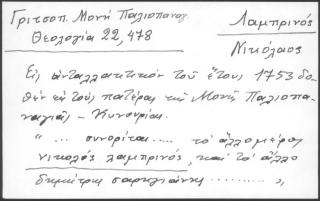 Γριτσοπ. Μονή Παλιοπαναγ.
Θεολογία 22, 478
Λαμπρινός
Νικόλαος
Εἰς ἀνταλλακτικὸν τοῦ ἔτους 1753 δο-
θὲν εἰς τοὺς πατέρας τῆς Μονῆς Παλιοπα-
ναγιᾶς - Κυνουρίας.
"... συνορίται..... τὸ ἄλλο μέρος
νικολὸς λαμπρινός, καὶ τὸ ἄλλο
δημήτρης σαρηγιάννης ......... "